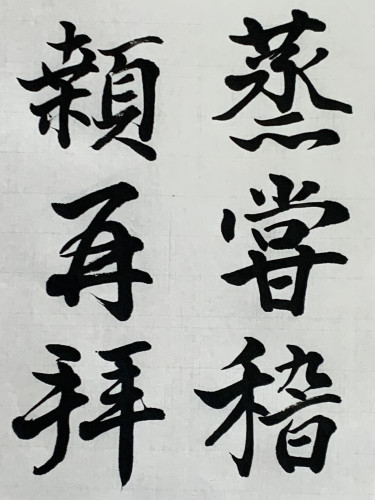 蒸甞稽
顙再拜